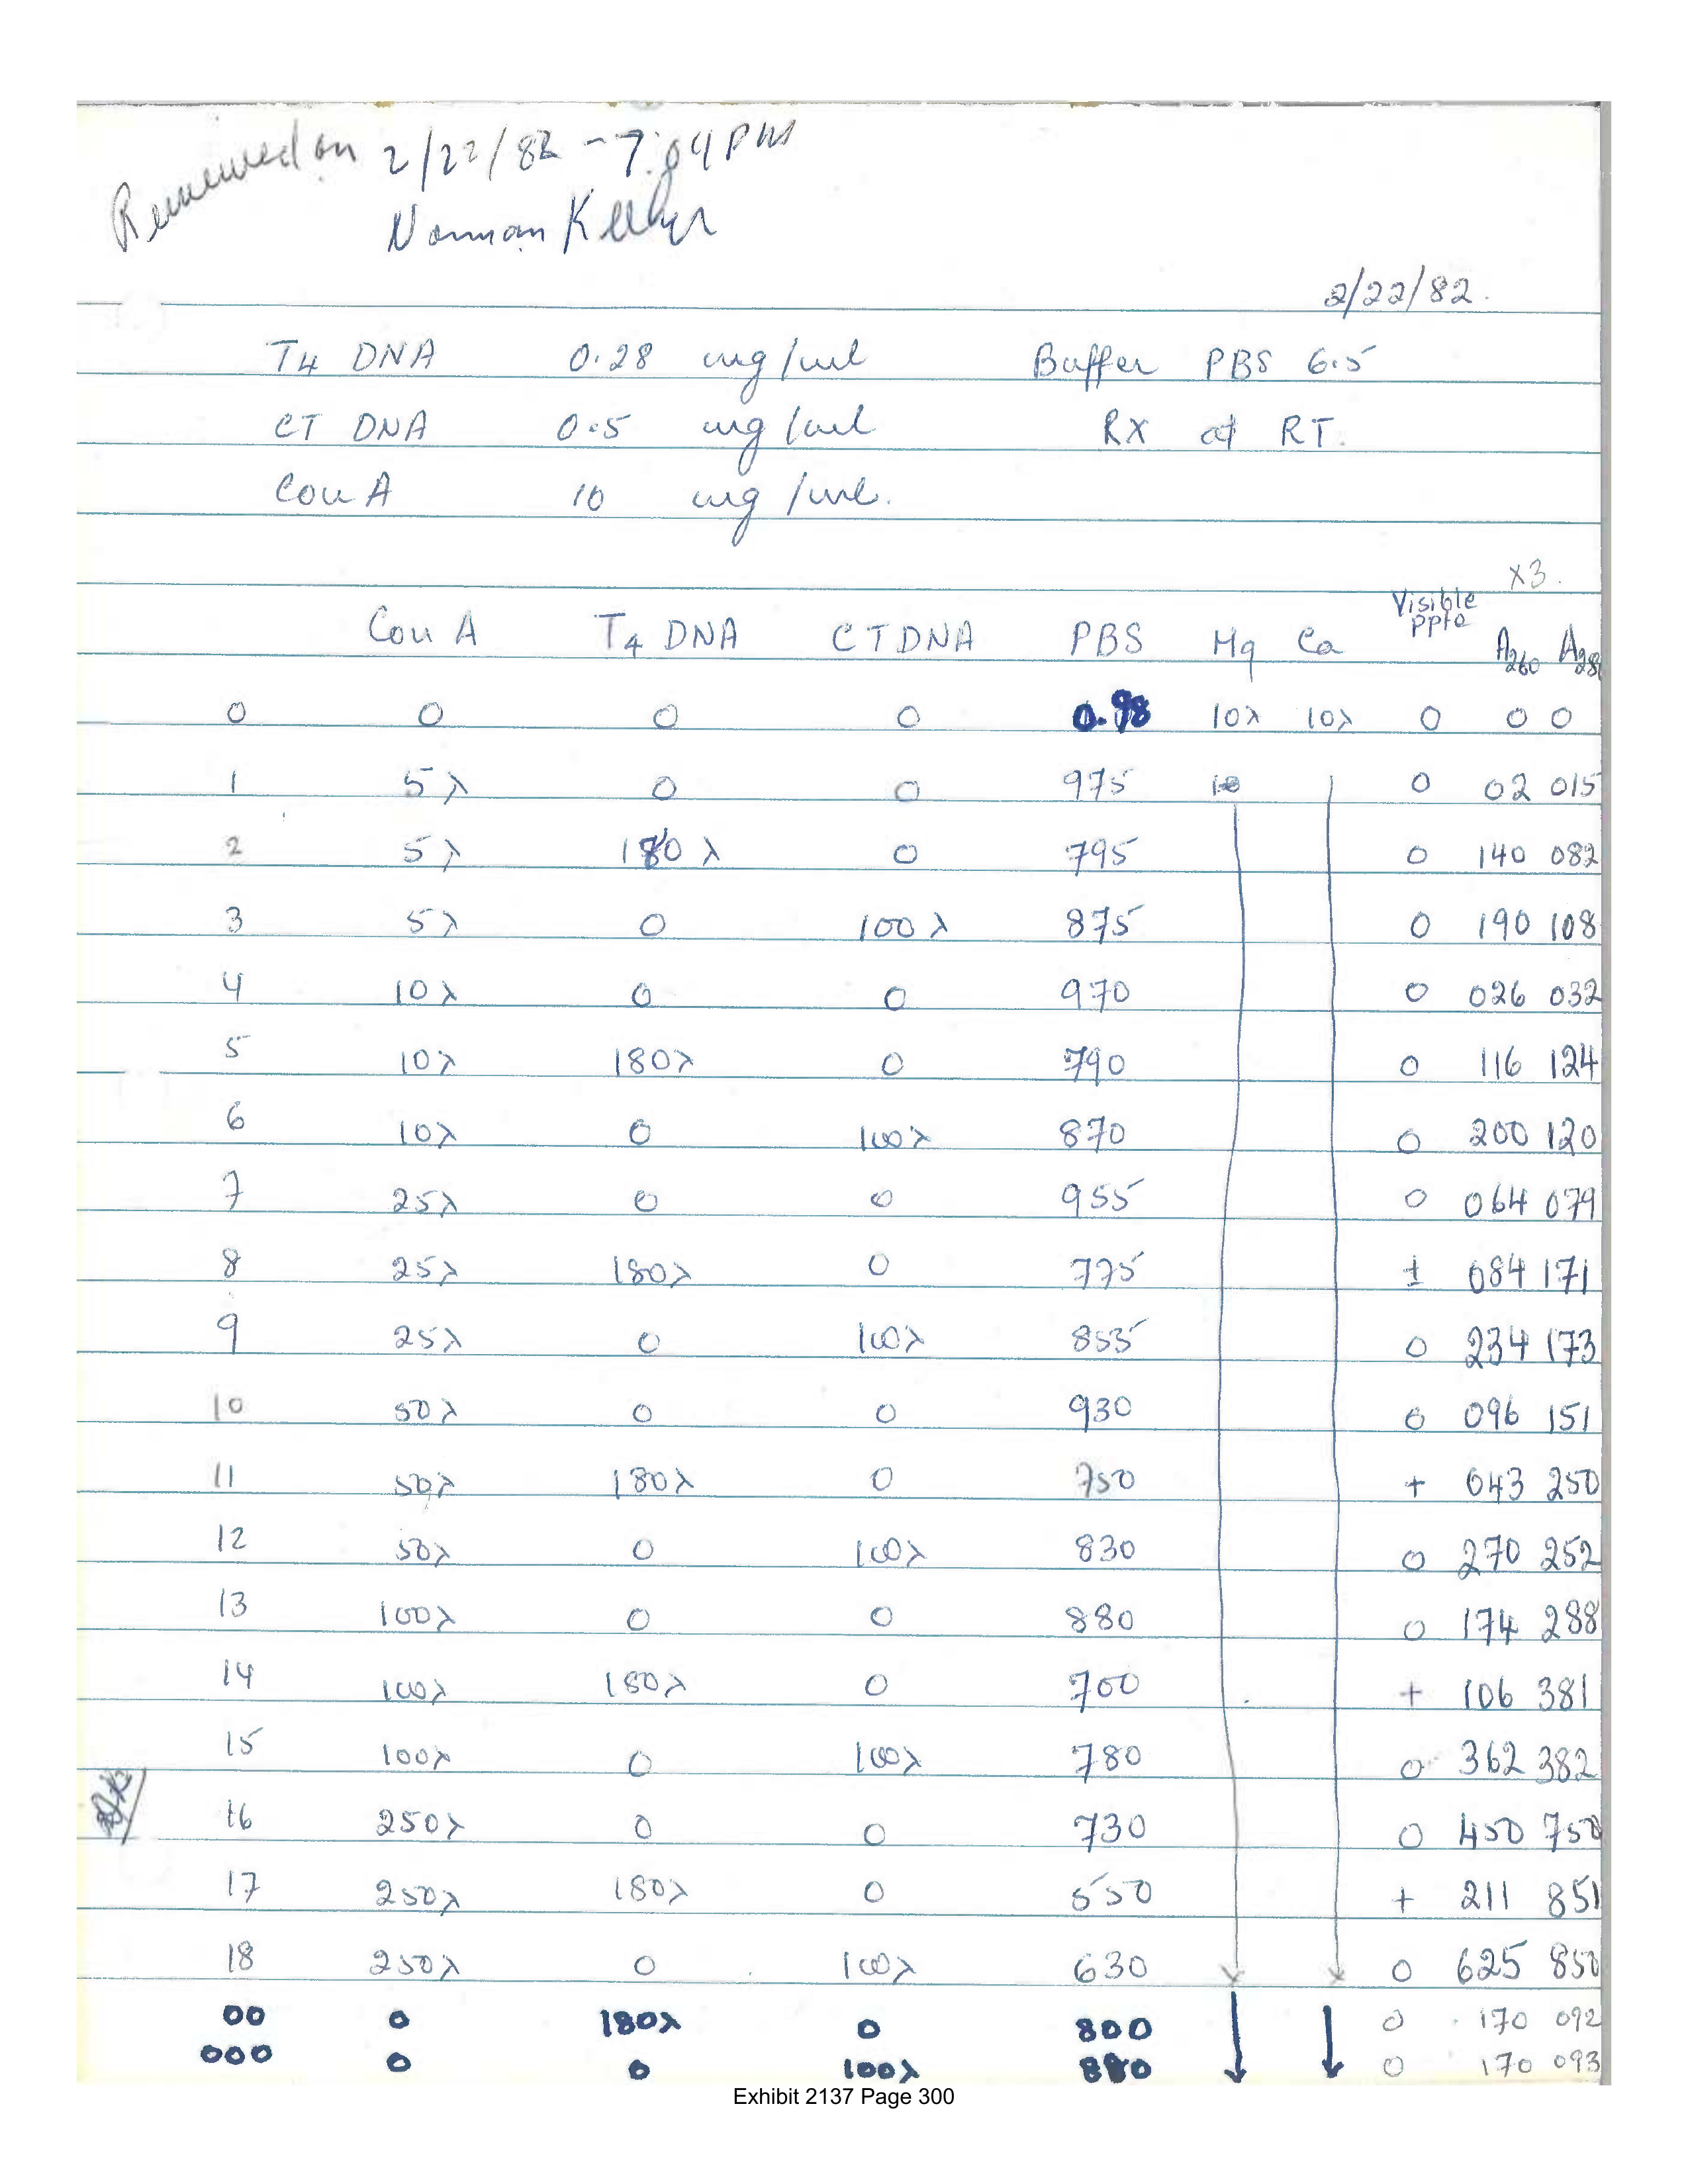 Reviewed on 2/22/82 - 7:04 PM
Norman Kelker
2/22/82.
T4 DNA 0.28 mg/ml Buffer PBS 6.5
CT DNA 0.5 mg/ml RX at RT.
Con A 10 mg/ml.
x3.
Con A T4 DNA CT DNA PBS Mg Ca Visible ppte A260 A280
0 0 0 0 0.98 10λ 10λ 0 0 0
1 5λ 0 0 975 10 0 02 015
2 5λ 180λ 0 795 0 140 082
3 5λ 0 100λ 875 0 190 108
4 10λ 0 0 970 0 026 032
5 10λ 180λ 0 790 0 116 124
6 10λ 0 100λ 870 0 200 120
7 25λ 0 0 955 0 064 079
8 25λ 180λ 0 775 ± 084 171
9 25λ 0 100λ 855 0 234 173
10 50λ 0 0 930 0 096 151
11 50λ 180λ 0 750 + 043 250
12 50λ 0 100λ 830 0 270 252
13 100λ 0 0 880 0 174 288
14 100λ 180λ 0 700 + 106 381
15 100λ 0 100λ 780 0 362 382
16 250λ 0 0 730 0 450 750
17 250λ 180λ 0 550 + 211 851
18 250λ 0 100λ 630 0 625 850
00 0 180λ 0 800 0 170 092
000 0 0 100λ 880 0 170 093
Exhibit 2137 Page 300